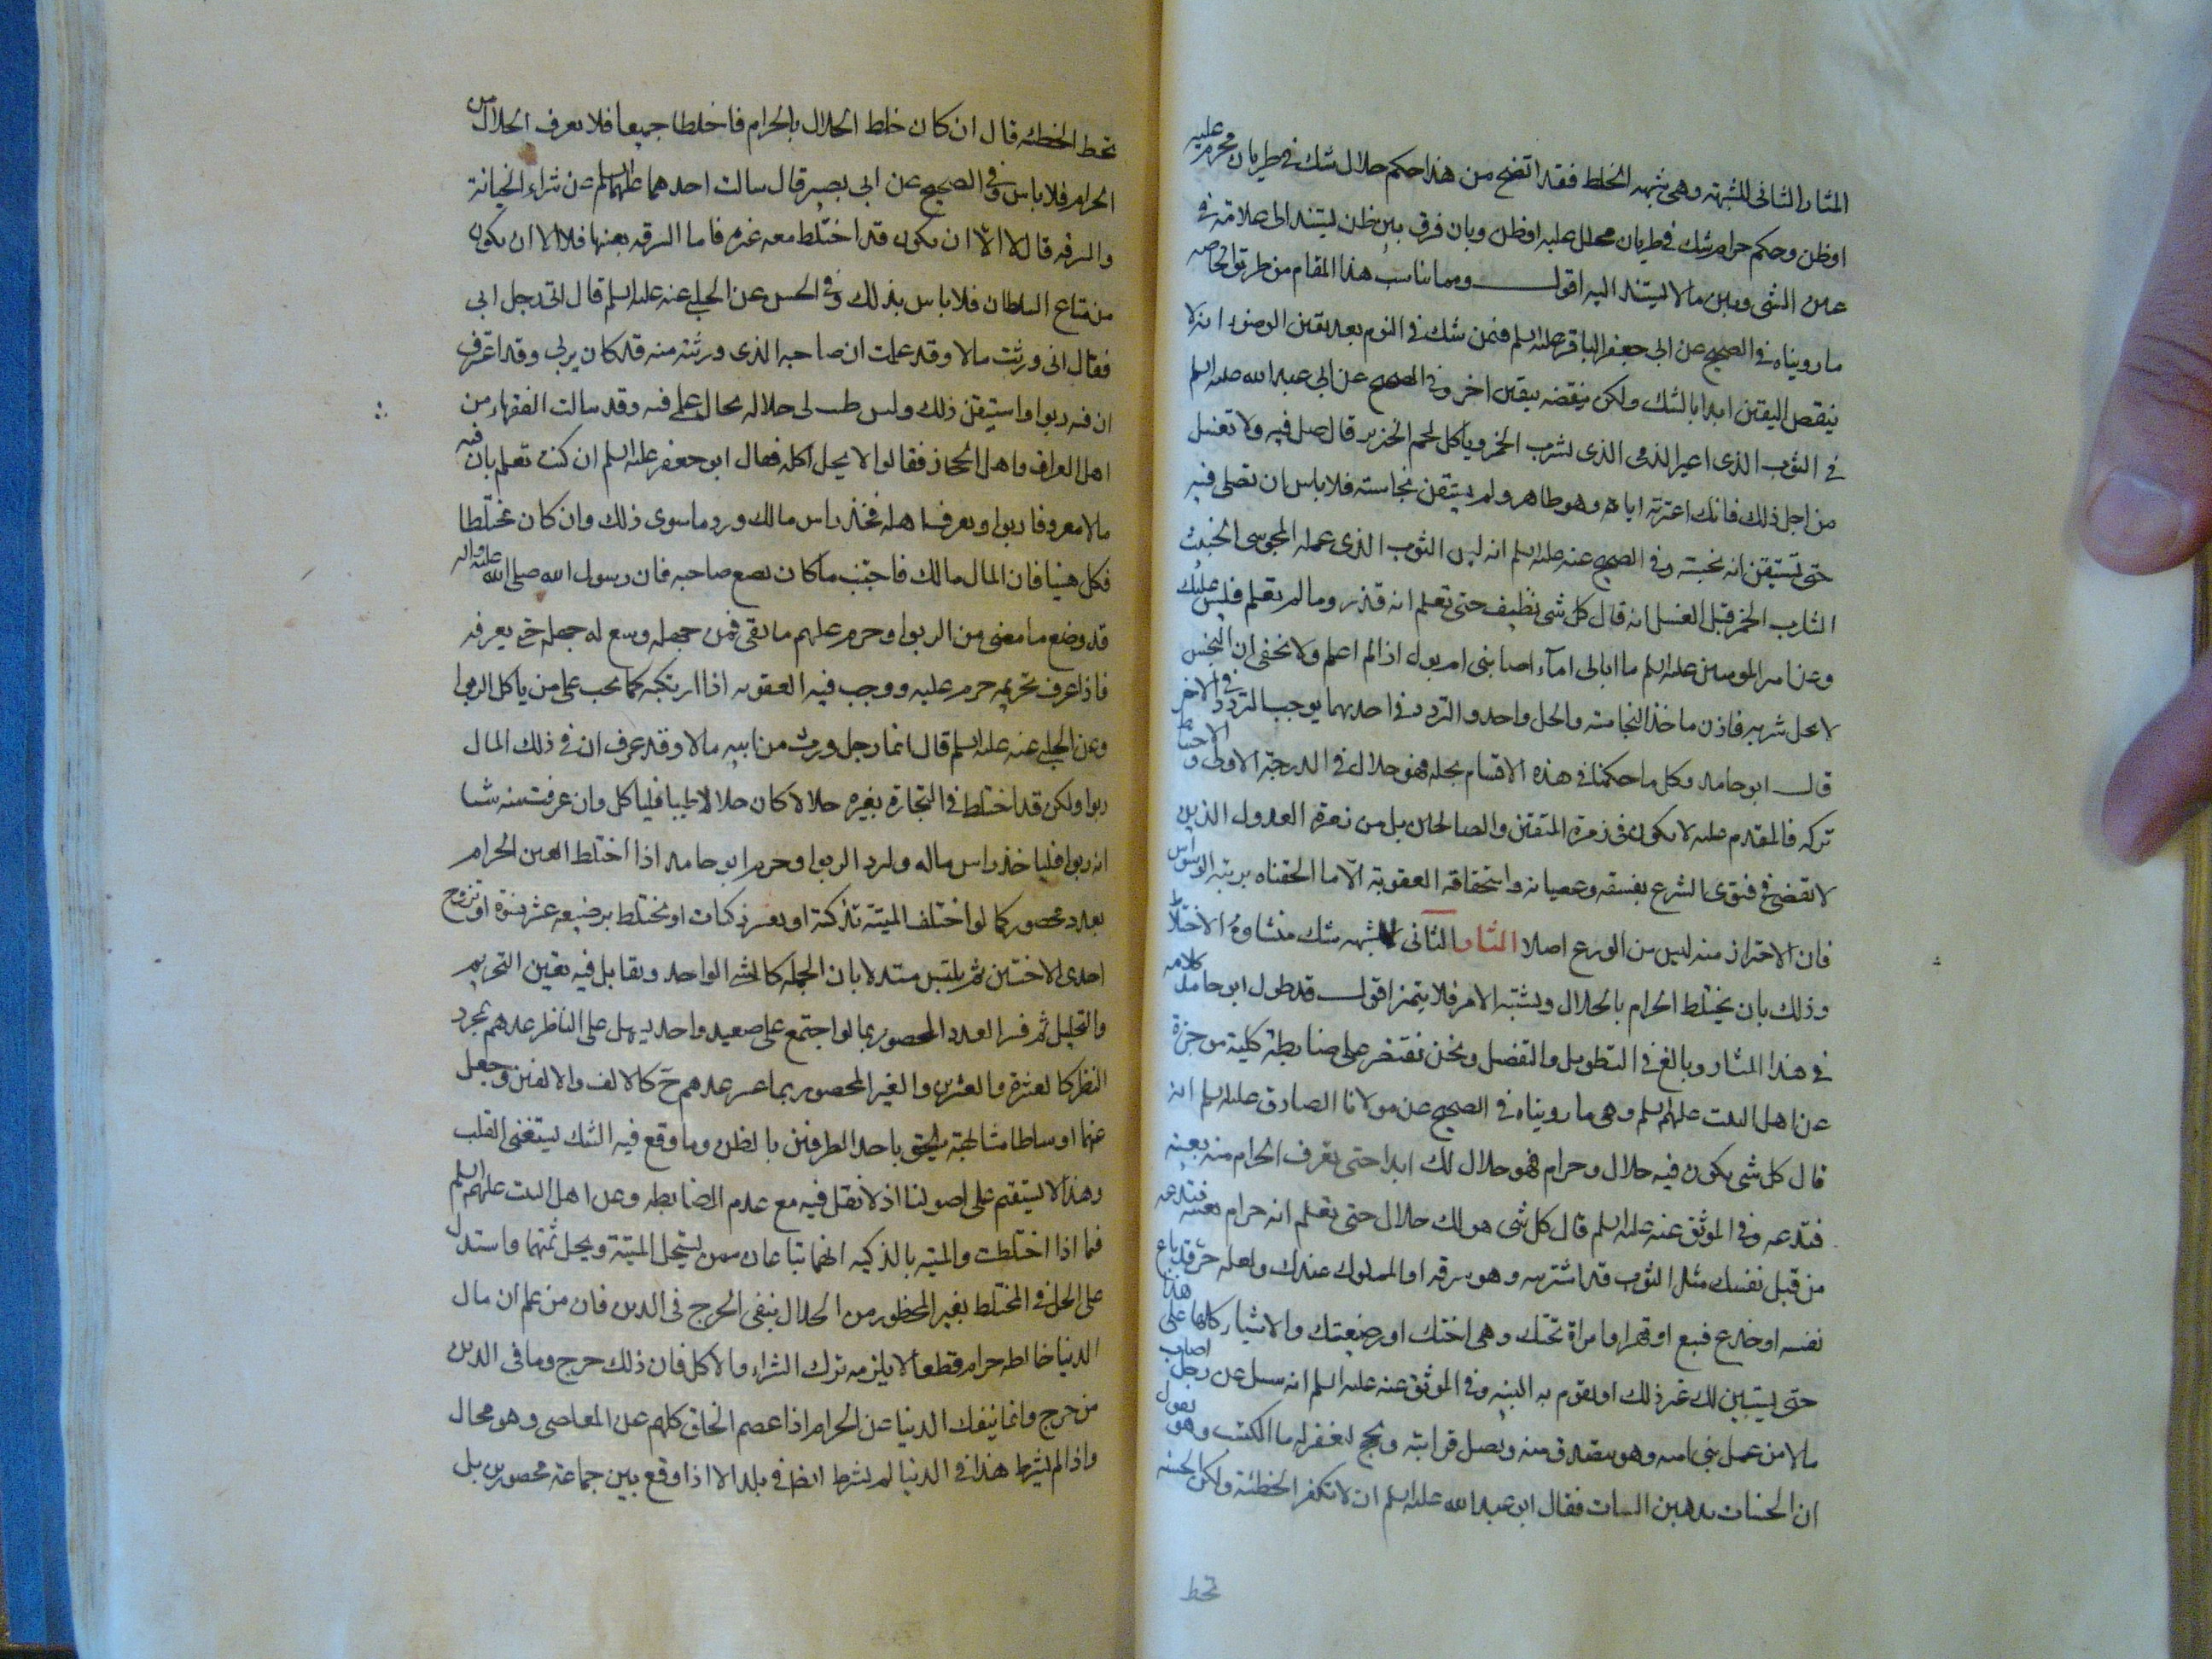 المثار الثانى للشبهة وهى شبهه الخلط فقد اتضح من هذا حكم حلال شك فى طريان محرم عليه
او ظن وحكم حرام شك فى طريان محلل عليه او ظن وبان فرق بين ظن يستند الى علامة فى
عين الشى وبين ما لا يستند اليه اقول ومما يناسب هذا المقام من طريق الخاصه
ما رويناه فى الصحيح عن ابى جعفر الباقر عليه السلم فيمن شك فى النوم بعد يقين الوضوء انه لا
ينقض اليقين ابدا بالشك ولكن ينقضه بيقين اخر وفى الصحيح عن ابى عبد الله عليه السلم
فى الثوب الذى اعير الذمى الذى يشرب الخمر وياكل لحم الخنزير قال صل فيه ولا تغسل
من اجل ذلك فانك اعرته اياه وهو طاهر ولم تستيقن نجاسته فلا باس ان تصلى فيه
حتى تستيقن انه نجسه وفى الصحيح عنه عليه السلم انه لبس الثوب الذى عمله المجوسى الخبيث
الشارب الخمر قبل الغسل انه قال كل شى نظيف حتى تعلم انه قذر وما لم تعلم فليس عليك
وعن امير المومنين عليه السلم ما ابالى امآء اصابنى ام بول اذا لم اعلم ولا يخفى ان النجس
لا يحل شربه فاذن ماخذ النجاسة والحل واحد والتردد فى احدهما يوجب التردد فى الاخر
قال ابو حامد وكل ما حكمنا فى هذه الاقسام بحله فهو حلال فى الدرجة الاولى والاحتياط
تركه فالمقدم عليه لا يكون فى زمرة المتقين والصالحين بل من زمرة العدول الذين
لا تقضى فى فتوى الشرع بفسقه وعصيانه واستحقاقه العقوبة الّا ما الحقناه برتبة الوسواس
فان الاحتراز منه ليس من الورع اصلا المثار الثانى للشبهه شك منشاوه الاختلاط
وذلك بان يختلط الحرام بالحلال ويشتبه الامر فلا يتميز اقول قد طول ابو حامد كلامه
فى هذا المثار وبالغ فى التطويل والتفصيل ونحن نقتصر على ضابطة كلية موجزة
عن اهل البيت عليهم السلم وهى ما رويناه فى الصحيح عن مولانا الصادق عليه السلم انه
قال كل شى يكون فيه حلال وحرام فهو حلال لك ابدا حتى تعرف الحرام منه بعينه
فتدعه وفى الموثق عنه عليه السلم قال كل شى هو لك حلال حتى تعلم انه حرام بعينه فتدعه
من قبل نفسك مثل الثوب قد اشتريته وهو سرقه او المملوك عندك ولعله حر قد باع
نفسه او خدع فبيع او قهر او امراة تحتك وهى اختك او رضيعتك والاشياء كلها على هذا
حتى يستبين لك غير ذلك او تقوم به البينه وفى الموثق عنه عليه السلم انه سئل عن رجل اصاب
مالا من عمل بنى اميه وهو يتصدق منه ويصل قرابته ويحج ليغفر له ما اكتسب وهو يقول
ان الحسنات يذهبن السيات فقال ابو عبد الله عليه السلم ان لا تكفر الخطئة ولكن الحسنه
تحط
تحط الخطئه قال ان كان خلط الحلال بالحرام فاختلطا جميعا فلا يعرف الحلال من
الحرام فلا باس وفى الصحيح عن ابى بصير قال سالت احدهما عليهما السلم عن شراء الخيانة
والسرقه قال لا الّا ان يكون قد اختلط معه غيره فاما السرقه بعينها فلا الا ان يكون
من متاع السلطان فلا باس بذلك وفى الحسن عن الحلبى عنه عليه السلم قال اتى رجل ابى
فقال انى ورثت مالا وقد علمت ان صاحبه الذى ورثته منه قد كان يربى وقد اعرف
ان فيه ربوا واستيقن ذلك وليس طيب لى حلاله بحال علمى فيه وقد سالت الفقهاء من
اهل العراق واهل الحجاز فقالوا لا يحل اكله فقال ابو جعفر عليه السلم ان كنت تعلم بان فيه
مالا معروفا ربوا وتعرف اهله فخذ راس مالك ورد ما سوى ذلك وان كان مختلطا
فكل هنيئا فان المال مالك فاجتنب ما كان يصنع صاحبه فان رسول الله صلى الله عليه واله
قد وضع ما مضى من الربوا وحرم عليهم ما بقى فمن جهله وسع له جهله حتى يعرفه
فاذا عرف تحريمه حرم عليه ووجب فيه العقوبه اذا ارتكبه كما يجب على من ياكل الربوا
وعن الحلبى عنه عليه السلم قال ايما رجل ورث من ابيه مالا وقد عرف ان فى ذلك المال
ربوا ولكن قد اختلط فى التجارة بغيره حلالا كان حلالا طيبا فلياكل وان عرفت منه شيا
انه ربوا فلياخذ راس ماله وليرد الربوا وحرم ابو حامد اذا اختلط العين الحرام
بعدد محصور كما لو اختلف الميتة بذكية او بعشر ذكيات او يختلط رضيعه عشر نسوة او تزوج
احدى الاختين ثم يلتبس مستدلا بان الجمله كالشى الواحد وتقابل فيه يقين التحريم
والتحليل ثم فسر العدد المحصور بما لو اجتمع على صعيد واحد يسهل على الناظر عدهم بمجرد
النظر كالعشرة والعشرين والغير المحصور بما عسر عدهم ح كالالف والالفين وجعل
بينهما اوساطا متشابهة يلحق باحد الطرفين بالظن وما وقع فيه الشك يستفتى القلب
وهذا لا يستقيم على اصولنا اذ لا نقل فيه مع عدم الضابطه وعن اهل البيت عليهم السلم
فيما اذا اختلطت والميته بالذكيه انهما تباعان ممن يستحل الميتة ويحل ثمنهما واستدل
على الحل فى المختلط بغير المحظور من الحلال بنفى الحرج فى الدين فان من علم ان مال
الدنيا خالطه حرام قطعا لا يلزمه ترك الشراء والاكل فان ذلك حرج وما فى الدين
من حرج وانما ينفك الدنيا عن الحرام اذا عصم الخلق كلهم عن المعاصى وهو محال
واذا لم يشرط هذا فى الدنيا لم يشرط ايضا فى بلد الا اذا وقع بين جماعة محصورين بل